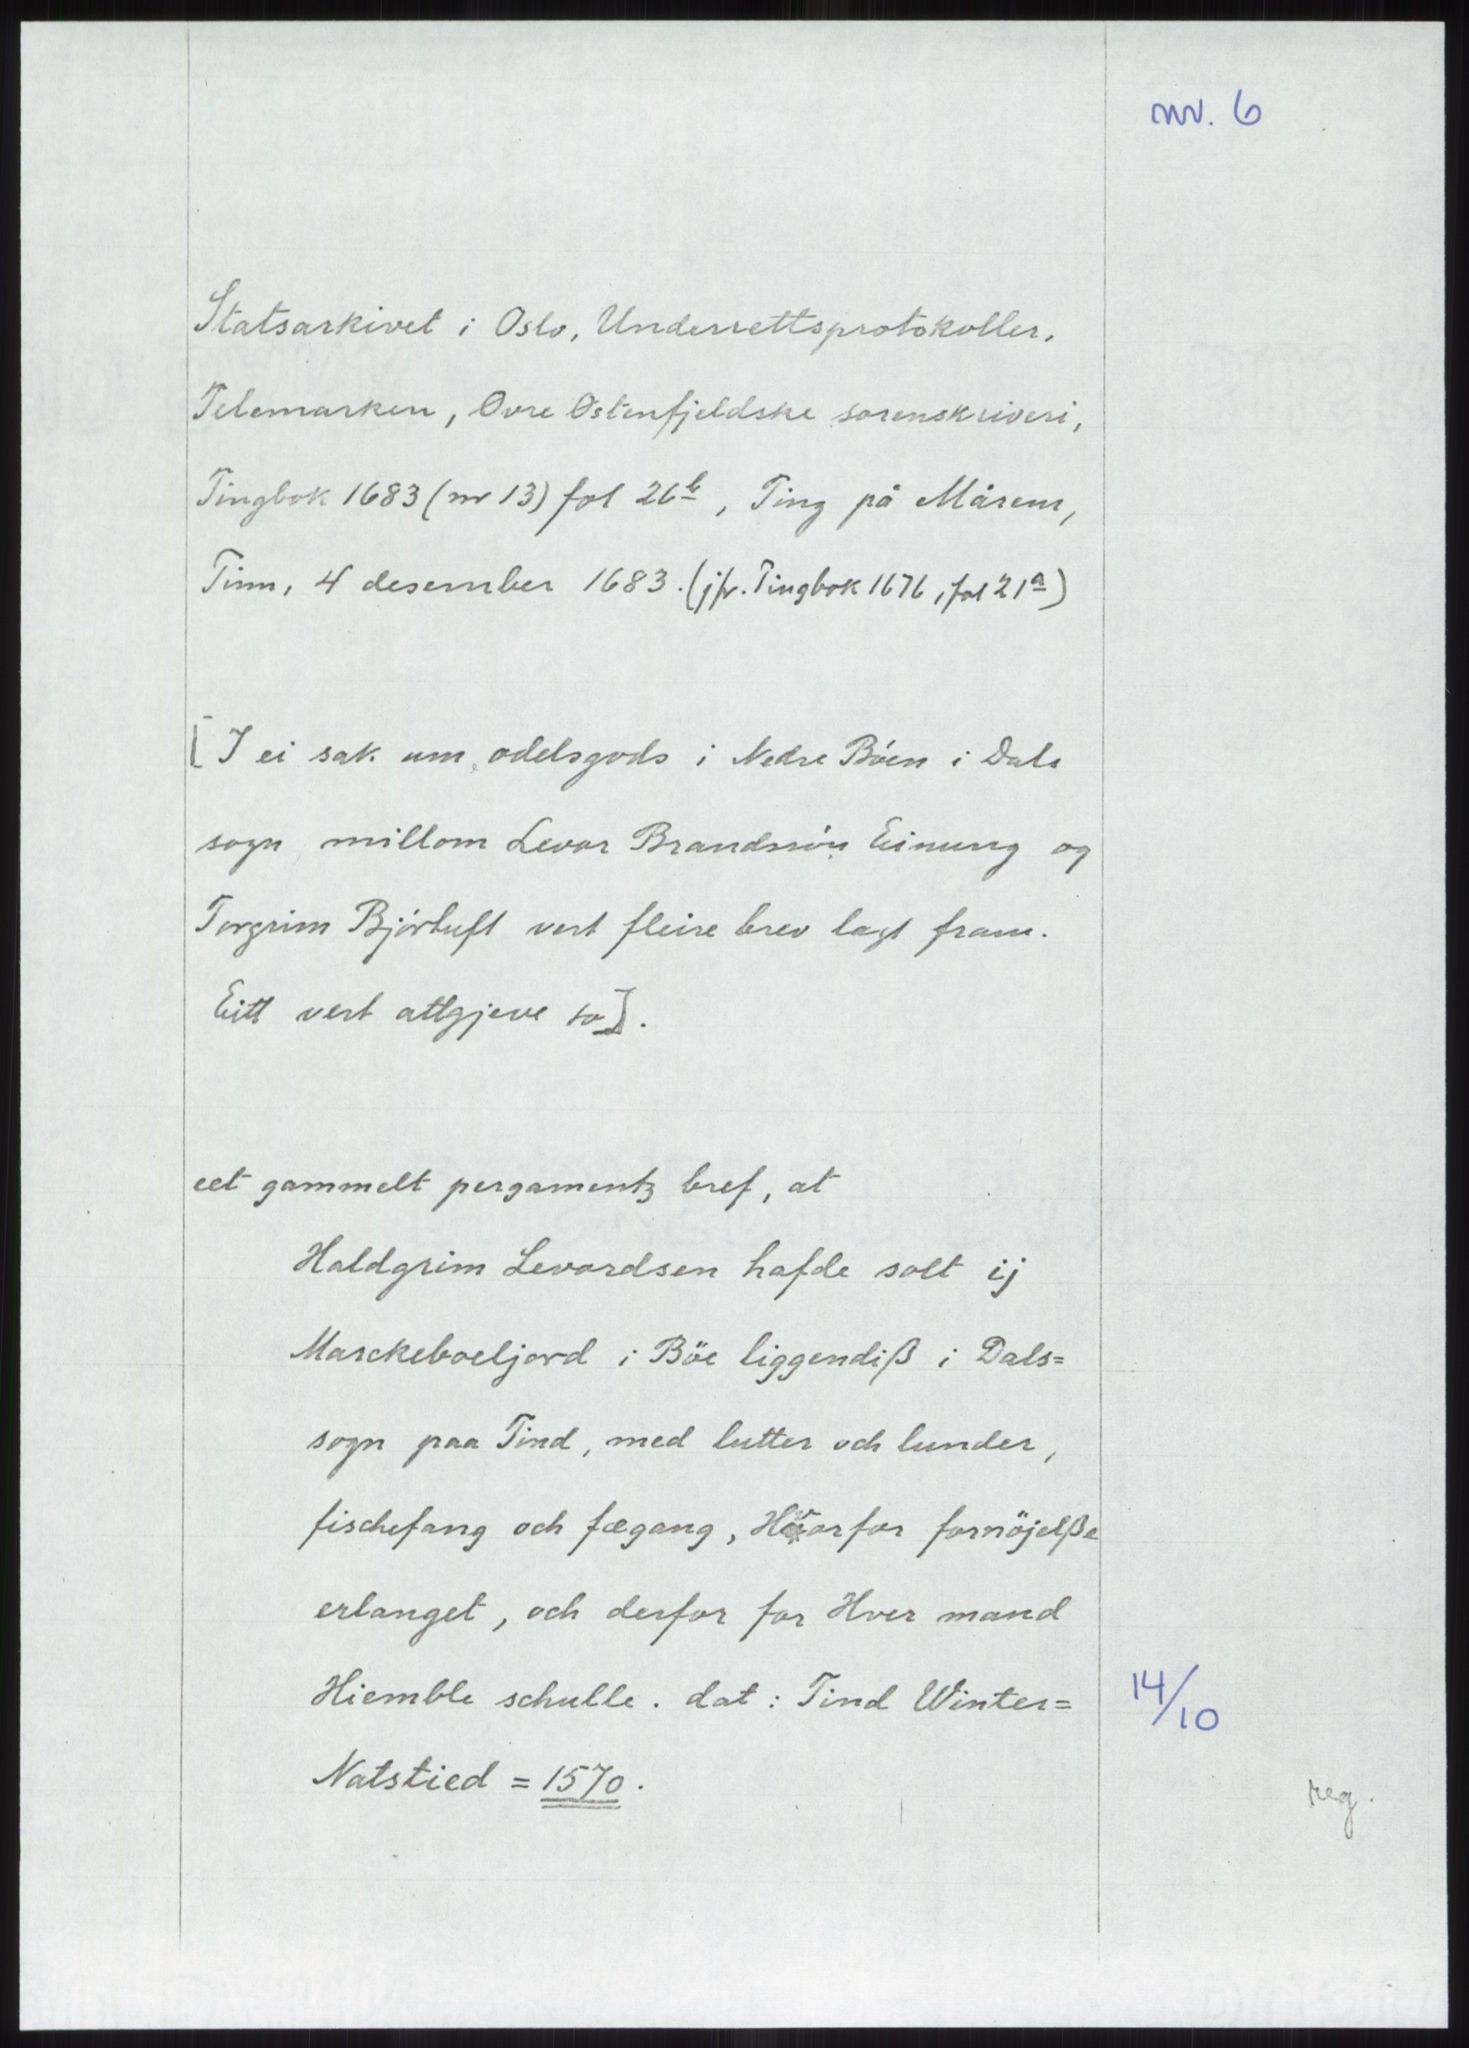 nr. 6
Statsarkivet i Oslo, Underrettsprotokoller,
Telemarken, Øvre Østenfjeldske sorenskriveri,
Tingbok 1683 (nr 13) fol 26b, Ting på Mårem,
Tinn, 4 desember 1683. (jfr. Tingbok 1676, fol 21a)
[I ei sak um odelsgods i Nedre Bøen i Dals
sogn millom Levor Brandsøn Einung og
Torgrim Bjørtuft vert fleire brev lagt fram.
Eitt vert attgjeve so].
eet gammelt pergamentz bref, at
Haldgrim Levordsen hafde solt ij
Marckeboeljord i Böe liggendiß i Dals=
sogn paa Tind, med lutter och lunder,
fischefang och fægang, Hvorfor fornöjelße
erlanget, och derfor for Hver mand
Hiemble schulle. dat: Tind Winter=
14/10
Natstied = 1570.
reg.